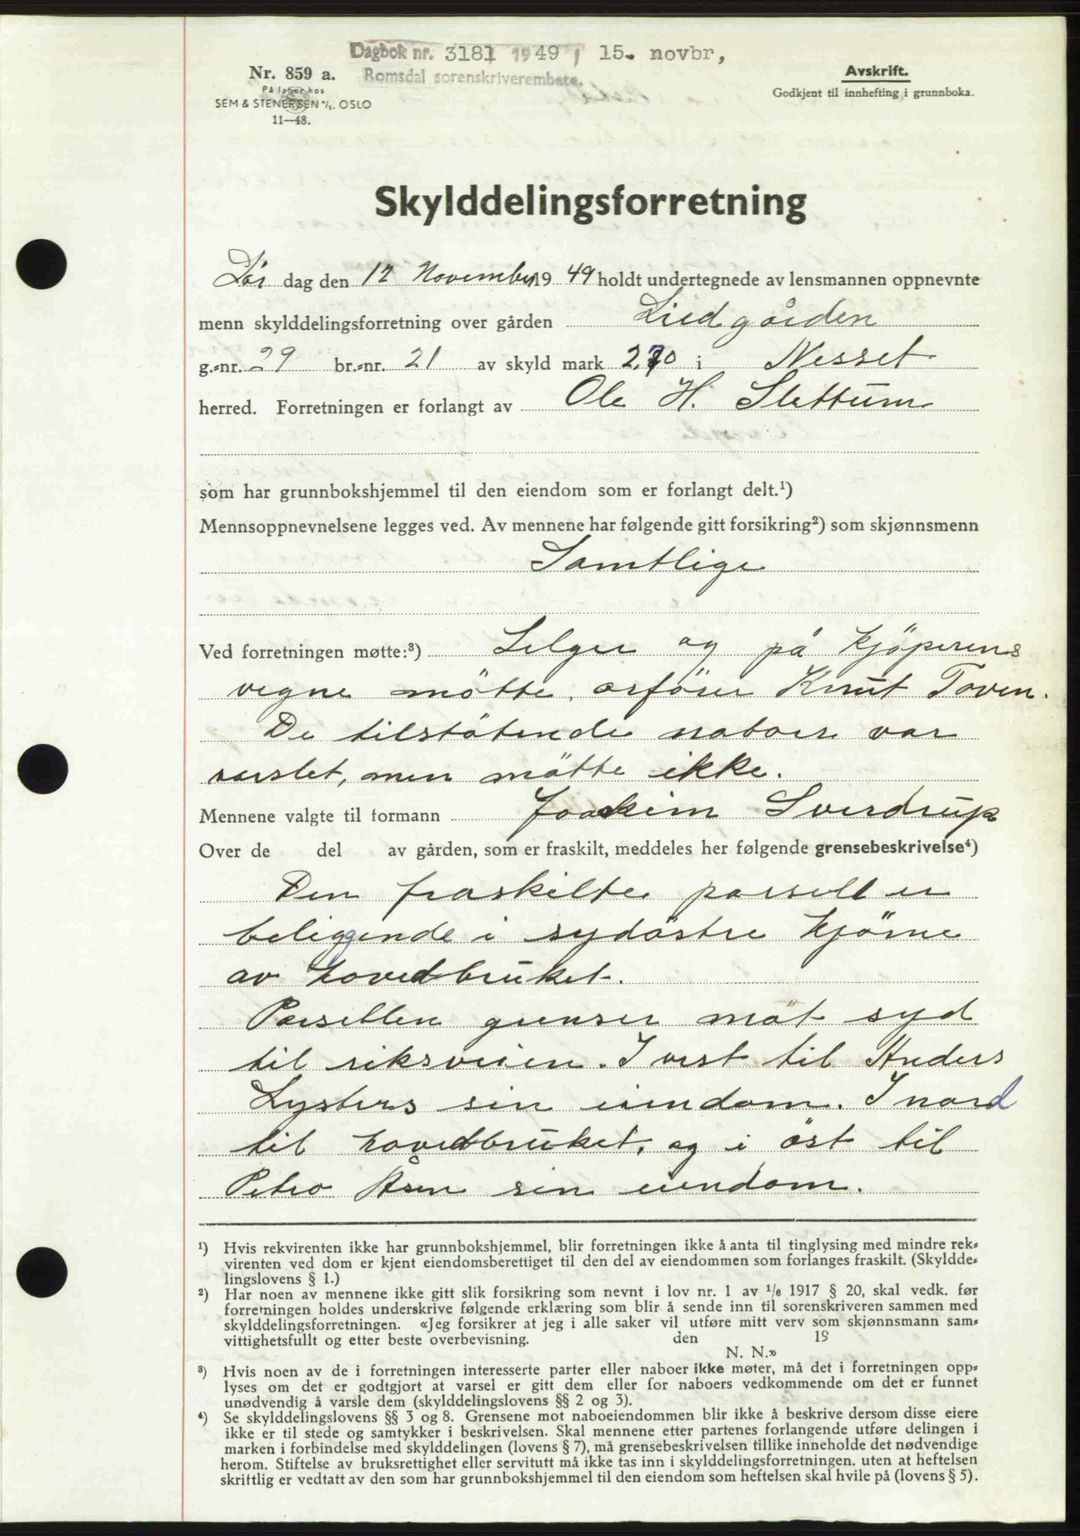 Dagbok nr. 3181 1949, 15. novbr,
Romsdal sorenskriverembete.
Nr. 859 a.
På lager hos
SEM & STENERSEN A/S. OSLO
11—48.
Avskrift.
Godkjent til innhefting i grunnboka.
Skylddelingsforretning
Lør dag den 12 November 1949 holdt undertegnede av lensmannen oppnevnte
menn skylddelingsforretning over gården Liedgården
g.-nr. 29 br.-nr. 21 av skyld mark 2,70 i Nesset
herred. Forretningen er forlangt av Ole H. Slettum
som har grunnbokshjemmel til den eiendom som er forlangt delt.¹)
Mennsoppnevnelsene legges ved. Av mennene har følgende gitt forsikring²) som skjønnsmenn
Samtlige
Ved forretningen møtte:³) Selger og på kjöperens
vegne mötte Knut Toven.
De tilstötende naboer var
varslet, men mötte ikke.
Mennene valgte til formann Joakim Sverdrup
Over de del av gården, som er fraskilt, meddeles her følgende grensebeskrivelse⁴)
Den fraskilte parsell er
beliggende i sydöstre hjörne
av hovedbruket.
Parsellen grenser mot syd
til riksveien. I vest til Anders
Lysters sin eiendom. I nord
til hovedbruket, og i öst til
Petro Åsen sin eiendom.
¹) Hvis rekvirenten ikke har grunnbokshjemmel, blir forretningen ikke å anta til tinglysing med mindre rek-
virenten ved dom er kjent eiendomsberettiget til den del av eiendommen som forlanges fraskilt. (Skyldde-
lingslovens § 1.)
²) Har noen av mennene ikke gitt slik forsikring som nevnt i lov nr. 1 av 1/6 1917 § 20, skal vedk. før
forretningen holdes underskrive følgende erklæring som blir å sende inn til sorenskriveren sammen med
skylddelingsforretningen. «Jeg forsikrer at jeg i alle saker vil utføre mitt verv som skjønnsmann sam-
vittighetsfullt og etter beste overbevisning. den 19
N. N.»
³) Hvis noen av de i forretningen interesserte parter eller naboer ikke møter, må det i forretningen opp-
lyses om det er godtgjort at varsel er gitt dem eller for naboers vedkommende om det er funnet
unødvendig å varsle dem (skylddelingslovens §§ 2 og 3).
⁴) Se skylddelingslovens §§ 3 og 8. Grensene mot naboeiendommen blir ikke å beskrive dersom disse eiere
ikke er til stede og samtykker i beskrivelsen. Skal mennene etter partenes forlangende utføre delingen i
marken i forbindelse med skylddelingen (lovens § 7), må grensebeskrivelsen tillike inneholde det nødvendige
herom. Stiftelse av bruksrettighet eller servitutt må ikke tas inn i skylddelingsforretningen. uten at heftelsen
skriftlig er vedtatt av den som har grunnbokshjemmel til den eiendom som heftelsen skal hvile på (lovens § 5).